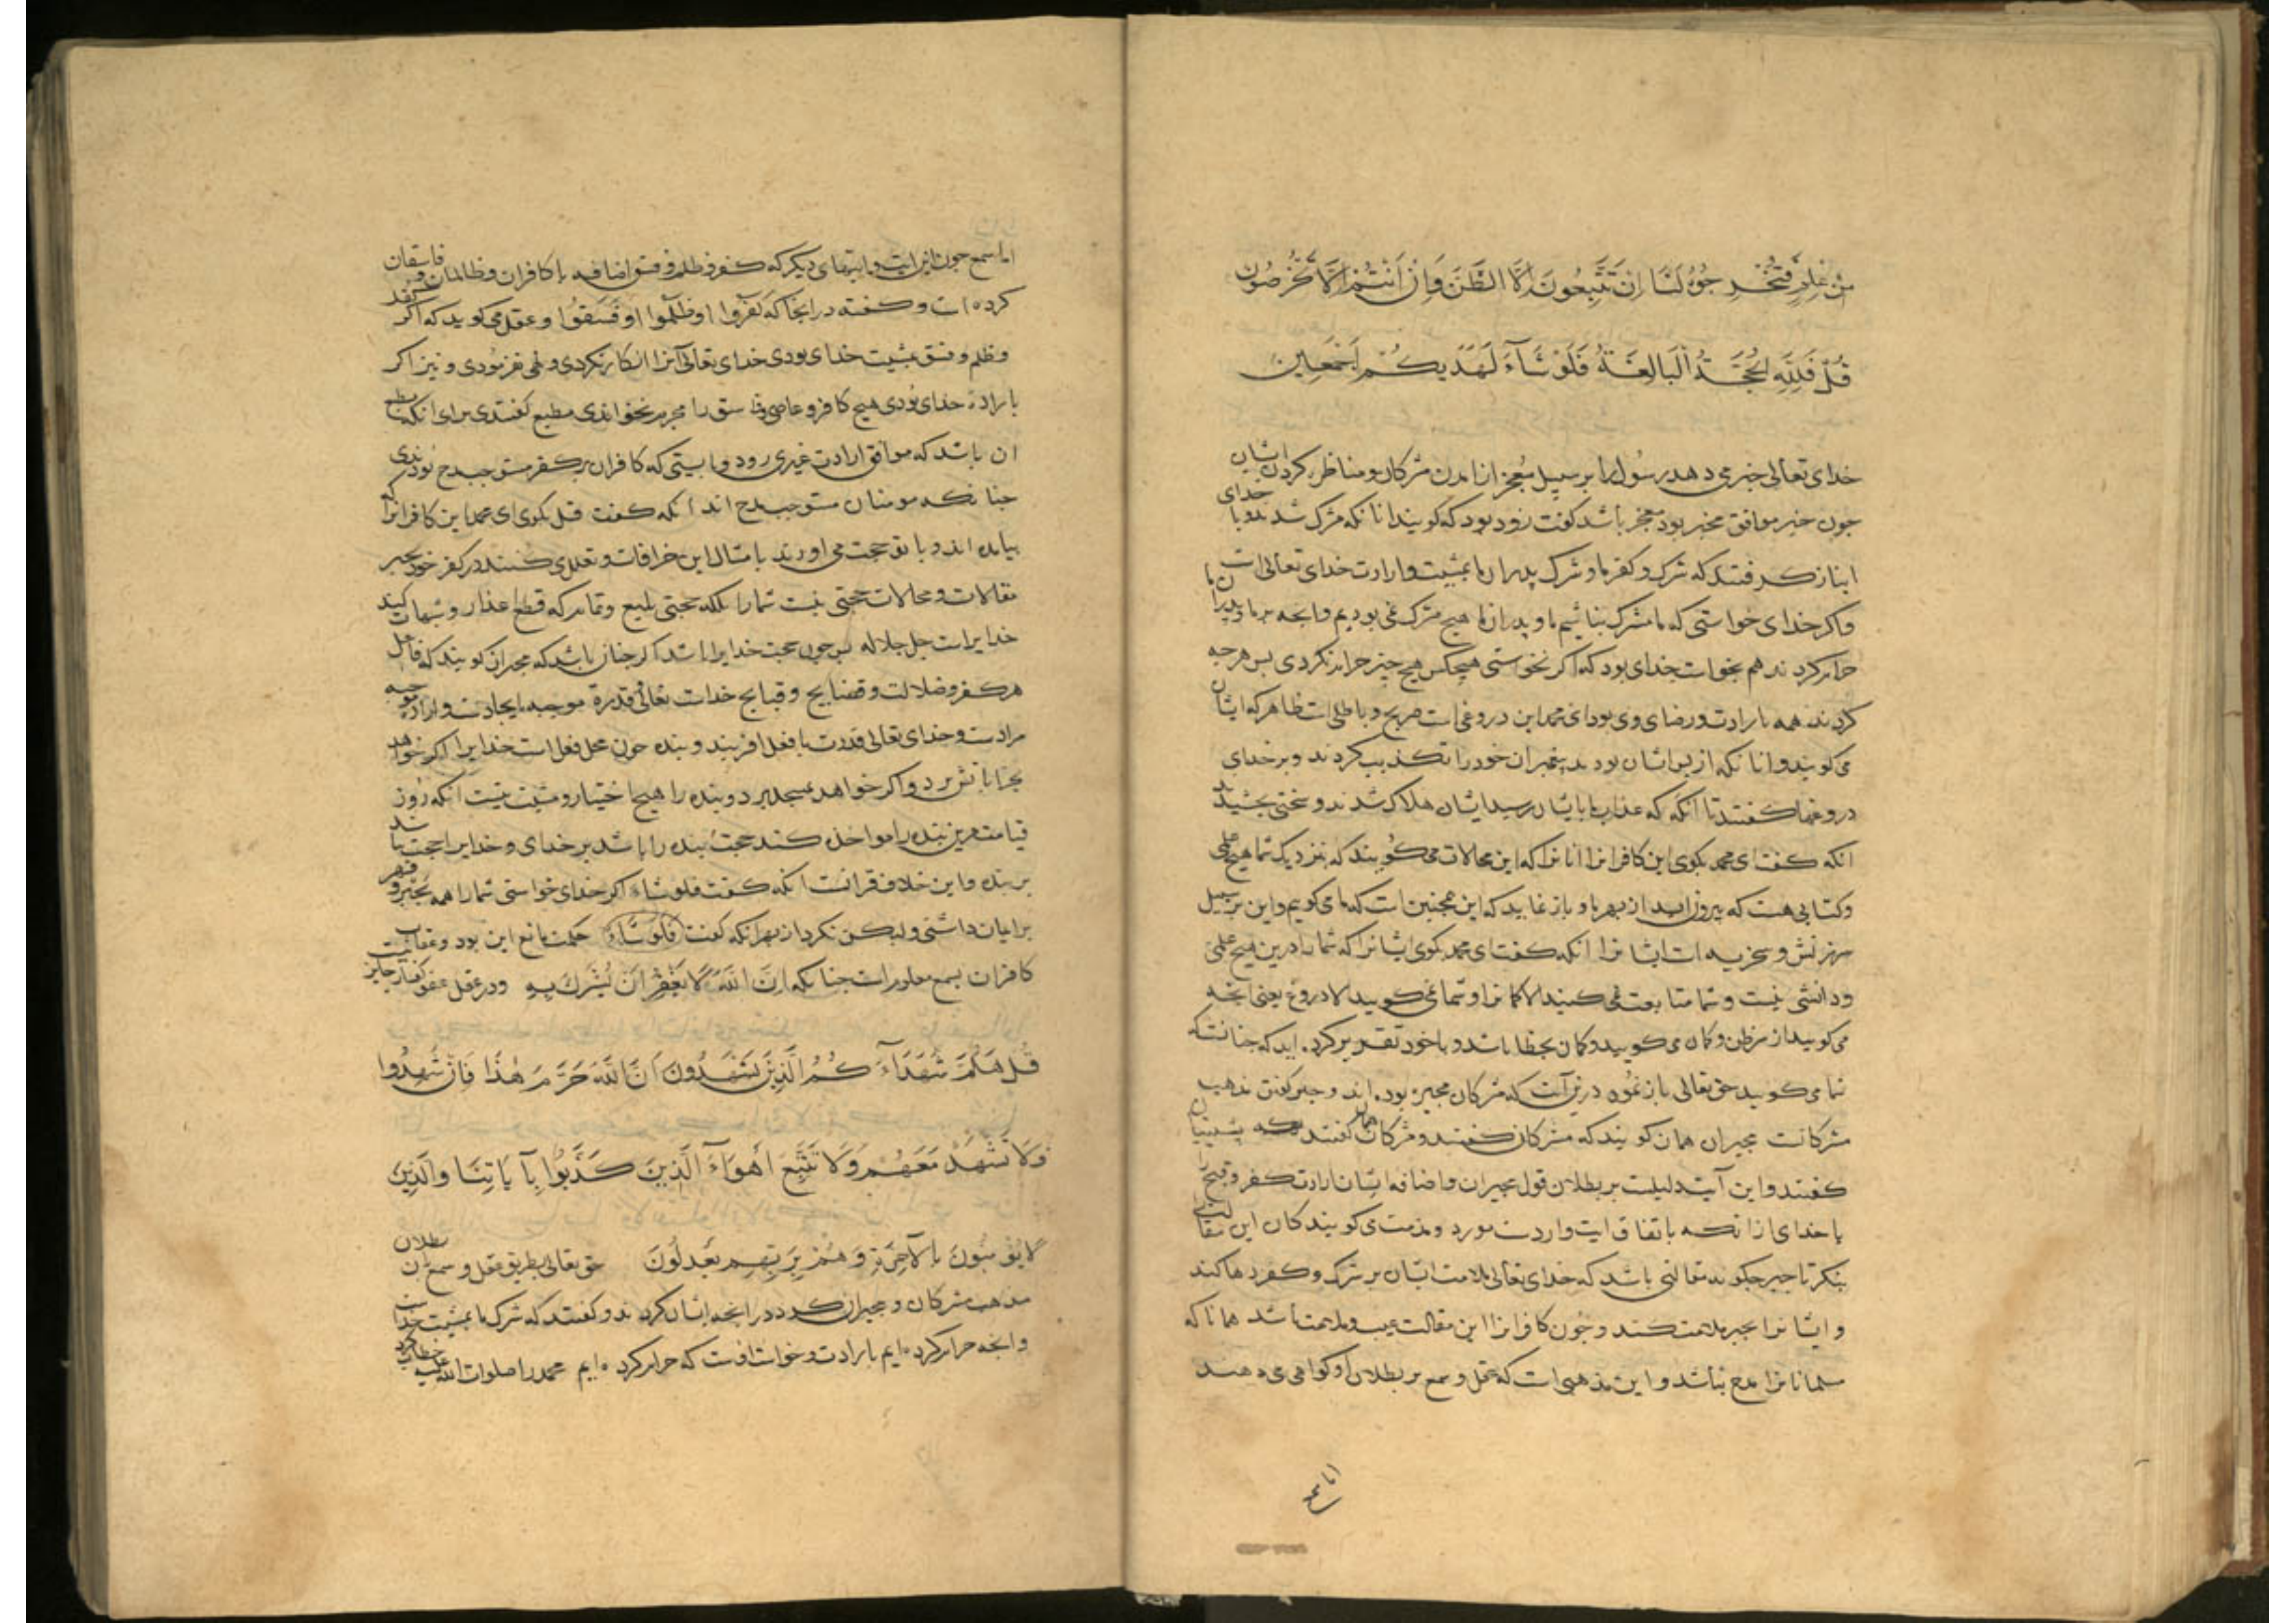 من علم فتخرجوه لنا ان تتبعون الا الظن وان انتم الا تخرصون
قل فلله الحجة البالغة فلو شاء لهديكم اجمعين
خدای تعالی خبر می دهد رسول را بر سبیل معجز از امدن مشرکان و مناظره کردن ایشان
جون خبر موافق مخبر بود معجز باشد کفت زود بود که کویند انانکه مشرک شدند و با خدای
انباز کرفتند که شرک و کفر ما و شرک پدران ما بمشیت و ارادت خدای تعالی است
واکر خدای خواستی که ما مشرک نباشیم ما و پدران ما هیچ مشرک نمی بودیم وانجه بر ما و پدران ما
حرام کردند هم بخواست خدای بود که اکر نخواستی هیچکس هیچ چیز حرام نکردی بس هرجه
کردند همه بارادت و رضای وی بود ای محمد این دروغی است صریح و باطلی است ظاهر که ایشان
می کویند و انانکه از پس ایشان بودند پیغمبران خود را تکذیب کردند و بر خدای
دروغها کفتند تا انکه که عذاب ما بایشان رسید ایشان هلاک شدند و سختی بچشیدند
انکه کفت ای محمد بکوی این کافرانرا انانرا که این محالات می کویند که نزدیک شما هیچ علمی
وکتابی هست که بیرون ارید از بهر ما و باز نمایید که این همچنین است که ما می کویم و این بر سبیل
سرزنش و سخریه است ایشانرا انکه کفت ای محمد بکوی ایشانرا که شما را درین هیچ علمی
ودانشی نیست و شما متابعت نمی کنید الا کمانرا و شما نمی کویید الا دروغ یعنی انجه
می کویید از سر ظن و کمان می کویید و کمان بخطا باشد و با خود تقدیر کرده اید که جنانست که
شما می کویید حق تعالی باز نموده درین آیت که مشرکان مجبر بوده اند و جبر کفتن مذهب
مشرکانست مجبران همان کویند که مشرکان کفتند و مشرکان همان کفتند که پیشینیان
کفتند و این آیت دلیلست بر بطلان قول مجبران و اضافه ایشان ارادت کفر و قبیح
با خدای از انکه باتفاق ایت واردست مورد ومذمت کویندکان این مقالت
بنکر تا جبر جکونه مقالتی باشد که خدای تعالی ملامت ایشان بر شرک و کفر رها کند
و ایشانرا بجبر ملامت کند و جون کافرانرا این مقالت عیب و ملامت باشد همانا که
مسلمانانرا مدح نباشد و این مذهبی است که عقل و سمع بر بطلان او کواهی می دهند
اما سمع
اما سمع جون این ایت و ایتهای دیکر که کفر و ظلم و فسق اضافه با کافران و ظالمان و فاسقان
کرده است و کفته در انجا که کفروا او ظلموا او فسقوا و عقل می کوید که اکر کفر
و ظلم و فسق بمشیت خدای بودی خدای تعالی آنرا انکار نکردی و نهی نفرمودی و نیز اکر
بارادة خدای بودی هیچ کافر و عاصی و فاسق را مجرم نخواندی مطیع کفتندی برای انکه مطیع
ان باشد که موافق ارادت غیری رود و بایستی که کافران بر کفر مستوجب مدح بودندی
جنانکه مومنان مستوجب مدح اند انکه کفت قل بکوی ای محمد این کافرانرا که
بیامده اند و با تو حجت می اورند بامثال این خرافات و تعلل می کنند در کفر خود بجبر
مقالات و محالات حجتی نیست شما را بلکه حجتی بلیغ و تمام که قطع اعذار و شبهات کند
خدایراست جل جلاله بس جون حجت خدایرا باشد اکر جنان باشد که مجبران کویند که فاعل
هر کفر و ضلالت و فضایح و قبایح خداست تعالی قدرة موجبه بایجادست و ارادة موجبه
مرادست و خدای تعالی قدرت با فعل افریند و بنده جون محل فعل است خدایرا اکر خواهد
بخرابات برد و اکر خواهد بمسجد برد و بنده را هیچ اختیار و مشیت نیست انکه روز
قیامت برین بنده را مواخذه کند حجت بنده را باشد بر خدای و خدایرا حجت باشد
بر بنده و این خلاف قرانست انکه کفت فلو شاء اکر خدای خواستی شما را همه بجبر و قهر
بر ایمان داشتی ولیکن نکرد از بهر انکه کفت فلو شاء حکمت مانع این بود و عقاب
کافران بسمع معلوم است جنانکه ان الله لا یغفر ان یشرک به و در عقل عفو کفار جایز
قل هلم شهداء کم الذین یشهدون ان الله حرم هذا فان شهدوا
ولا تشهد معهم ولا تتبع اهواء الذین کذبوا بآیاتنا والذین
لا یؤمنون بالآخرة وهم بربهم یعدلون حق تعالی بطریق عقل و سمع بطلان
مذهب مشرکان و مجبران کرد در انجه ایشان کردند و کفتند که شرک ما بمشیت خداست
وانجه حرام کرده ایم بارادت و خواست اوست که حرام کرده ایم محمد را صلوات الله علیه خطاب کرد